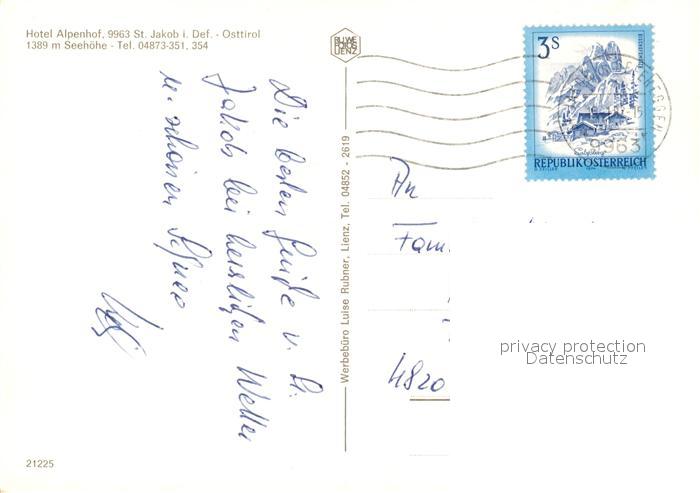 Hotel Alpenhof, 9963 St. Jakob i. Def. - Osttirol
1389 m Seehöhe - Tel. 04873-351, 354
Die besten Grüße v. St.
Jakob bei herrlichen Wetter
u. schönen Schnee
Werbebüro Luise Rubner, Lienz, Tel. 04852 - 2619
3 S
REPUBLIK ÖSTERREICH
9963
An
Fam.
4820
privacy protection
Datenschutz
21225